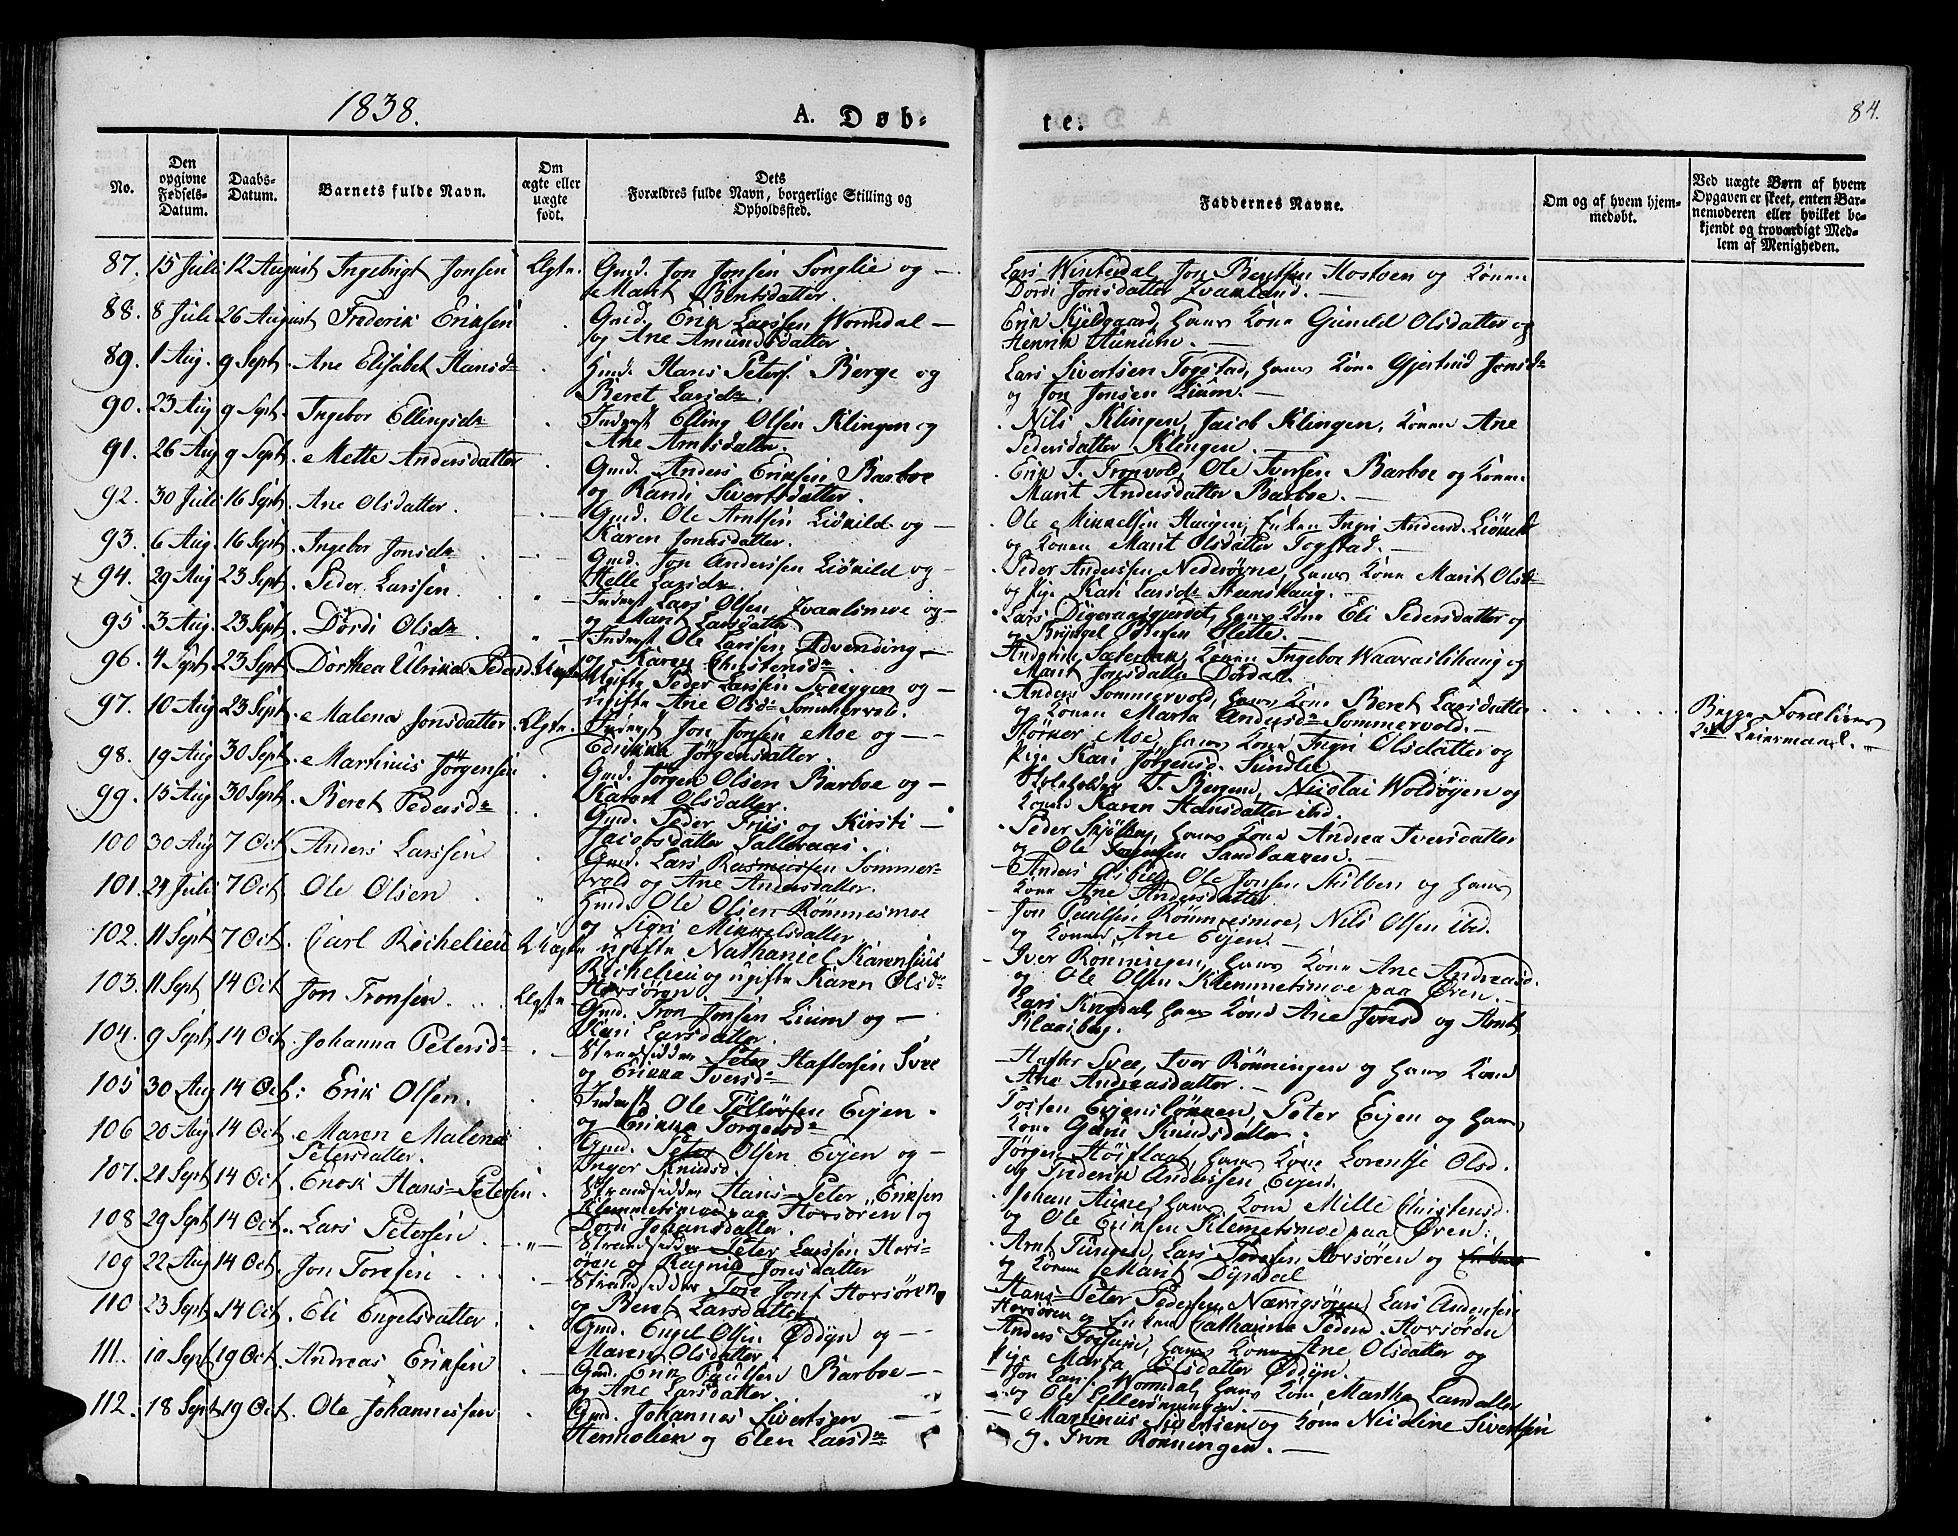 1838.
A. Døb-
te.
84.
No.
Den opgivne Fødsels-Datum.
Daabs-Datum.
Barnets fulde Navn.
Om ægte eller uægte født.
Dets Forældres fulde Navn, borgerlige Stilling og Opholdsted.
Faddernes Navne.
Om og af hvem hjem-medøbt.
Ved uægte Børn af hvem Opgaven er skeet, enten Bar-nemoderen eller hvilket be-kjendt og troværdigt Med-lem af Menigheden.
87. 15 Juli 12 August Ingebrigt Jonsen Ægte. Gmd. Jon Jonsen Songlie og —
Marit Bentsdatter.
Lars Winterdal, Jon Bentsen Hostoen og Konen
Dordi Jonsdatter
88. 8 Juli 26 August Frederik Eriksen Gmd. Erik Larssen Wormdal —
og Ane Amundsdatter
Erik Kjelsgaard, hans Kone Gunild Olsdatter og
Henrik
89. 1 Aug. 9 Sept. Ane Elisabet Hansd. Hmd. Hans Peters. Berge og
Beret Larsd.
Lars Sivertsen Togstad, hans Kone Gjertrud Jonsd.
og Jon Jonsen Lium. —
90. 23 Aug 9 Sept. Ingebor Ellingsd. Inderst Elling Olsen Klingen og
Ane Arntsdatter
Nils Klingen, Jacob Klingen, Konen Ane
Pedersdatter Klingen.
91. 26 Aug 9 Sept. Mette Andersdatter Gmd. Anders Eriksen Barboe
og Randi Sivertsdatter.
Erik T. Tronvold, Ole Iversen Barboe og Konen
Marit Andersdatter Barboe. —
92. 30 Juli 16 Sept Ane Olsdatter. Gmd. Ole Arntsen Liökild og —
Karen Jonasdatter.
Ole Mikkelsen Haugen, Enken Ingri Andersd. Liökild
og Konen Marit Olsdatter Togstad. —
93. 6 Aug. 16 Sept. Ingebor Jonsd. Gmd. Jon Anderssen Liökild og —
Larsd.
Peder Anderssen Nedreøvne, hans Kone Marit Olsd.
og Pige Kari Larsd.
94. 29 Aug 23 Sept. Peder Larssen. Inderst Lars Olsen Ivanlimoe og —
og Marit Larsdatter
Lars hans Kone Eli Pedersdatter og
og
95. 3 Aug. 23 Sept. Dordi Olsd. Inderst Ole Larssen —
og Karen Christensd.
Konen Ingebor og
Marit Jonsdatter Dørdal.
96. 4 Sept 23 Sept Dorthea Ulrikka Pedersd. Uægte Ugifte Peder Larssen og —
ugifte Ane Olsd. Sommervold.
Anders Sommervold, hans Kone Beret Larsdatter
og Konen Marta Andersd. Sommervold.
Begge Forældrene
97. 10 Aug 23 Sept. Malena Jonsdatter. Ægte. Inderst Jon Jonsen Moe og —
Jörgensdatter
Störker Moe, hans Kone Ingri Olsdatter og
Pige Kari Jörgensd. Sundlie
98. 19 Aug 30 Sept. Martinus Jörgensen Gmd. Jörgen Olsen Barboe og —
Karen Olsdatter.
Skoleholder Nicolai Woldøyen og
Konen Karen Hansdatter ibd.
99. 15 Aug 30 Sept. Beret Pedersd. Gmd. Peder Friis og Kirsti —
Jacobsdatter Salteraas.
Peder hans Kone Andrea Iversdatter
og Ole Sandbakken. —
100 30 Aug 7 Oct Anders Larssen Gmd. Lars Rasmussen Sommer-
vold og Ane Andersdatter.
Anders Ole Jonsen Skilben og hans
Kone Ane Andersdatter
101. 24 Juli 7 Oct. Ole Olsen Hmd. Ole Olsen Römmesmoe
og Sigri Mikkelsdatter
Jon Paulsen Römmesmoe, Nils Olsen ibd.
og Konen Ane Evjen. —
102. 11 Sept 7 Oct. Carl Richelieu Uægte ugifte Nathaniel Karensius
Richelieu og ugifte Karen Olsd.
Horsören.
Iver Rönningen, hans Kone Ane Andreasd.
og Ole Olsen Klemmetsmoe paa Ören. —
103. 11 Sept 14 Oct Jon Tronsen. Ægte Gmd. Tron Jonsen Lium og —
Kari Larsdatter.
Lars Kingdal, hans Kone Ane Jonsd og Arnt
104. 9 Sept 14 Oct. Johanna Petersd. Strandsidder Peter Haftorsen Svee
og Erikka Iversd.
Hafter Svee, Iver Rönningen og hans Kone
Ane Andreasdatter. —
105 30 Aug 14 Oct: Erik Olsen. Inderst Ole Evjen.
og Torgersd.
Tosten Evjenslökken, Peter Evjen og hans
Kone Guri Knudsdatter.
106 20 Aug 14 Oct. Maren Malena
Petersdatter.
Gmd. Peter Olsen Evjen og —
Inger Knudsd.
Jörgen Höiflaat, hans Kone Lorentse Olsd.
og Frederik Anderssen Evjen.
107. 21 Sept 14 Oct. Enok Hans-Petersen Strandsidder Hans-Peter Eriksen
Klemmetsmoe paa Horsören og
Dordi Johansdatter.
Johan Aune, hans Kone Mille Christensd.
og Ole Eriksen Klemetsmoe paa Ören.
108 29 Sept. 14 Oct. Lars Petersen Strandsidder Peter Larssen Hors-
ören og Jonsdatter
Arnt Tungen, Lars Toresen Horsören og
og Konen Marit Dyrdal
109 22 Aug. 14 Oct. Jon Toresen Strandsidder Tore Jons. Horsören
og Beret Larsdatter
Hans-Peter Pedersen Lars Andersen
Horsören og Enken Cathanna Peders. Horsören
110 23 Sept 14 Oct. Eli Engelsdatter. Gmd. Engel Olsen Ödöyn og —
Maren Olsdatter
Anders hans Kone Ane Olsdatter og
Pige Marta Olsdatter Ödöyn.
111. 10 Sept 19 Oct Andreas Eriksen Gmd. Erik Paulsen Barboe —
og Ane Larsdatter.
Jon Lars. Wormdal, hans Kone Martha Larsdatter
og Ole
112. 18 Sept 19 Oct. Ole Johannessen Gmd. Johannes Sivertsen —
og Elen Larsd.
Martinus og Kone Nicoline Sivertsen
og Tron Rönningen. —